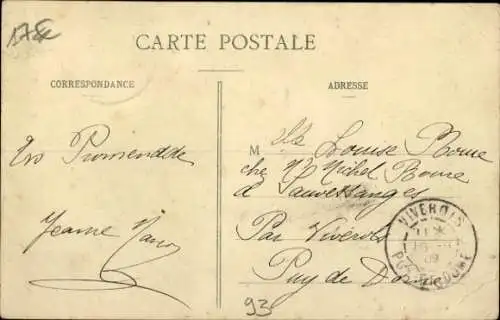 17€
CARTE POSTALE
CORRESPONDANCE
ADRESSE
En Promenade
Jeanne
Mlle Louise Borne
chez Mr Michel Borne
à Sauvessanges
Par Viverols
Puy de Dôme
VIVEROLS
09
PUY-DE-DOME
93